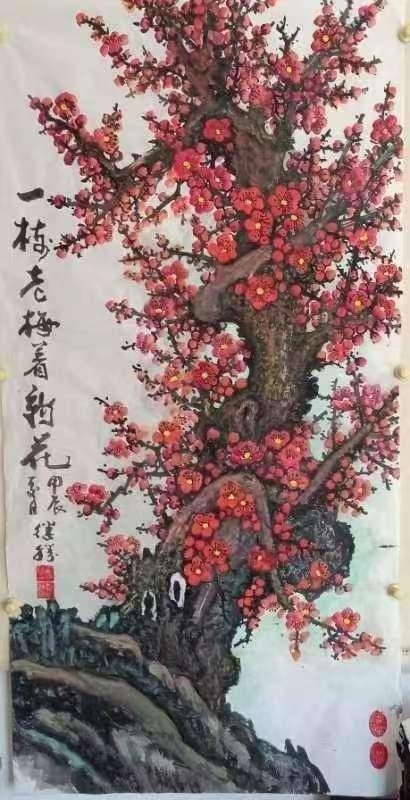 一树老梅着新花
甲辰
夏月